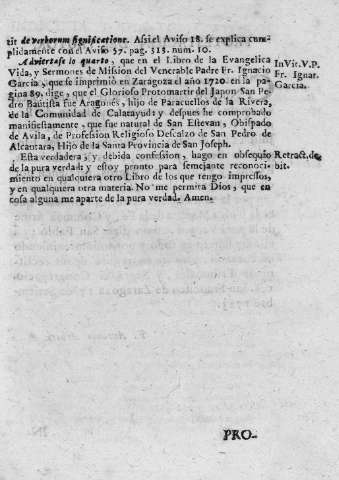 tit de verborum significatione. Assi el Aviso 18. se explica cum-
plidamente con el Aviso 57. pag. 313. num. 10.
Adviertase lo quarto, que en el Libro de la Evangelica
Vida, y Sermones de Mision del Venerable Padre Fr. Ignacio
Garcia, que se imprimiò en Zaragoza el año 1720. en la pa-
gina 89. dige, que el Glorioso Protomartir del Japon San Pe-
dro Bautista fue Aragonès, hijo de Paracuellos de la Rivera,
de la Comunidad de Calatayud: y despues he comprobado
manifiestamente, que fue natural de San Estevan, Obispado
de Avila, de Profession Religioso Descalzo de San Pedro de
Alcantara, Hijo de la Santa Provincia de San Joseph.
In Vit. V. P.
Fr. Ignat.
Garcia.
Esta verdadera, y debida confession, hago en obsequio
de la pura verdad: y estoy pronto para semejante reconoci-
miento en qualquiera otro Libro de los que tengo impressos,
y en qualquiera otra materia. No me permita Dios, que en
cosa alguna me aparte de la pura verdad. Amen.
Retract. de-
bit.
PRO-